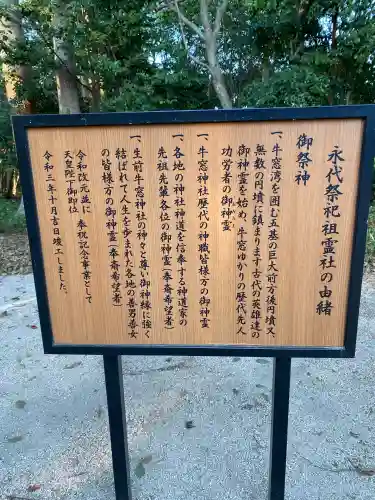 永代祭祀祖霊社の由緒
御祭神
一、牛窓湾の五基の巨大前方後円墳又
無数の円墳に鎮まります古代の英雄達の
御神霊を始め、牛窓ゆかりの歴代先人
功労者の御神霊
一、牛窓神社歴代の神職皆様方の御神霊
一、各地の神社神道を信奉する神道家の
先祖先輩各位の御神霊（奉斎希望者）
一、生前牛窓神社の神々と尊い御神縁に強く
結ばれて人生を歩まれた各地の善男善女
皆様方の御神霊（奉斎希望者）
令和改元並に
天皇陛下御即位 奉祝記念事業として
令和三年十月吉日竣工しました。